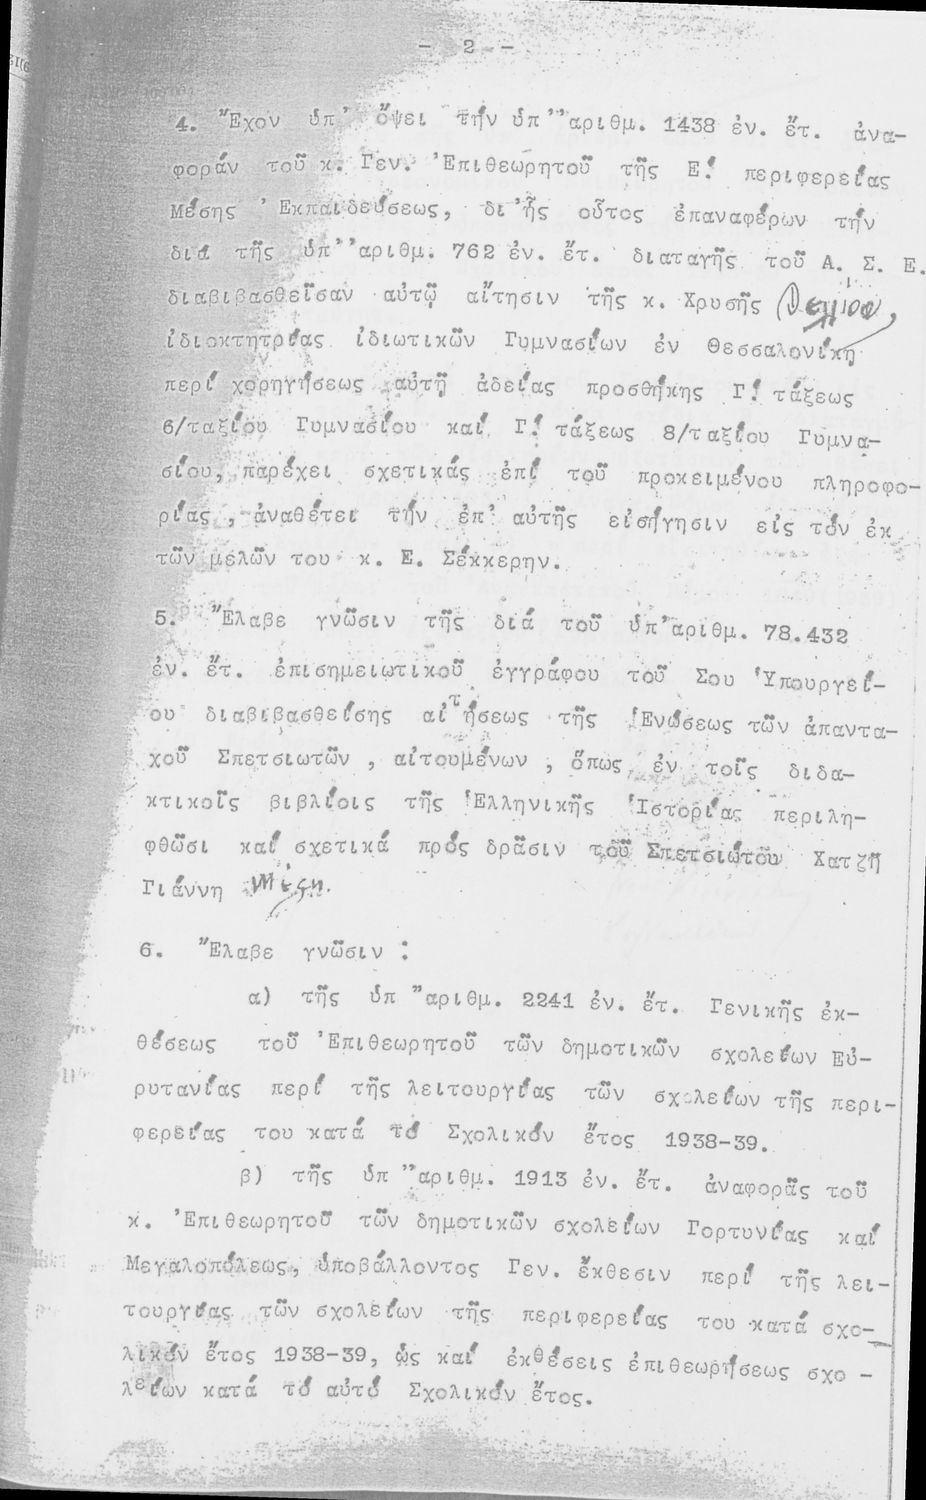 - 2 -
4. Ἔχον ὑπ' ὄψει τήν ὑπ' ἀριθμ. 1438 ἐν. ἔτ. ἀνα-
φοράν τοῦ κ. Γεν. Ἐπιθεωρητοῦ τῆς Ε! περιφερείας
Μέσης Ἐκπαιδεύσεως, δι' ἧς οὗτος ἐπαναφέρων τήν
διά τῆς ὑπ' ἀριθμ. 762 ἐν. ἔτ. διαταγῆς τοῦ Α. Σ. Ε.
διαβιβασθεῖσαν αὐτῷ αἴτησιν τῆς κ. Χρυσῆς
ἰδιοκτητρίας ἰδιωτικῶν Γυμνασίων ἐν Θεσσαλονίκῃ
περί χορηγήσεως αὐτῇ ἀδείας προσθήκης Γ! τάξεως
6/ταξίου Γυμνασίου καί Γ! τάξεως 8/ταξίου Γυμνα-
σίου, παρέχει σχετικάς ἐπί τοῦ προκειμένου πληροφο-
ρίας, ἀναθέτει τήν ἐπ' αὐτῆς εἰσήγησιν εἰς τόν ἐκ
τῶν μελῶν του κ. Ε. Σέκκερην.
5. Ἔλαβε γνῶσιν τῆς διά τοῦ ὑπ' ἀριθμ. 78.432
ἐν. ἔτ. ἐπισημειωτικοῦ ἐγγράφου τοῦ Σου Ὑπουργεί-
ου διαβιβασθείσης αἰτήσεως τῆς Ἑνώσεως τῶν ἁπαντα-
χοῦ Σπετσιωτῶν, αἰτουμένων, ὅπως ἐν τοῖς διδα-
κτικοῖς βιβλίοις τῆς Ἑλληνικῆς Ἱστορίας περιλη-
φθῶσι καί σχετικά πρός δρᾶσιν τοῦ Σπετσιώτου Χατζῆ
Γιάννη Μέξη.
6. Ἔλαβε γνῶσιν :
α) τῆς ὑπ' ἀριθμ. 2241 ἐν. ἔτ. Γενικῆς ἐκ-
θέσεως τοῦ Ἐπιθεωρητοῦ τῶν δημοτικῶν σχολείων Εὐ-
ρυτανίας περί τῆς λειτουργίας τῶν σχολείων τῆς περι-
φερείας του κατά τό Σχολικόν ἔτος 1938-39.
β) τῆς ὑπ' ἀριθμ. 1913 ἐν. ἔτ. ἀναφορᾶς τοῦ
κ. Ἐπιθεωρητοῦ τῶν δημοτικῶν σχολείων Γορτυνίας καί
Μεγαλοπόλεως, ὑποβάλλοντος Γεν. ἔκθεσιν περί τῆς λει-
τουργίας τῶν σχολείων τῆς περιφερείας του κατά σχο-
λικόν ἔτος 1938-39, ὡς καί ἐκθέσεις ἐπιθεωρήσεως σχο-
λείων κατά τό αὐτό Σχολικόν ἔτος.